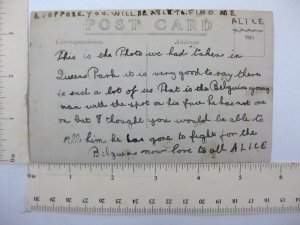 I SUPPOSE YOU WILL BE ABLE TO FIND ME
ALICE
POST CARD
Correspondence. Address
This is the Photo we had taken in
Queens Park it is very good to say there
is such a lot of us That is the Belguin young
man with the spot on his face he has not one
on but I thought you would be able to
tell him he has gone to fight for the
Belguins now love to all ALICE